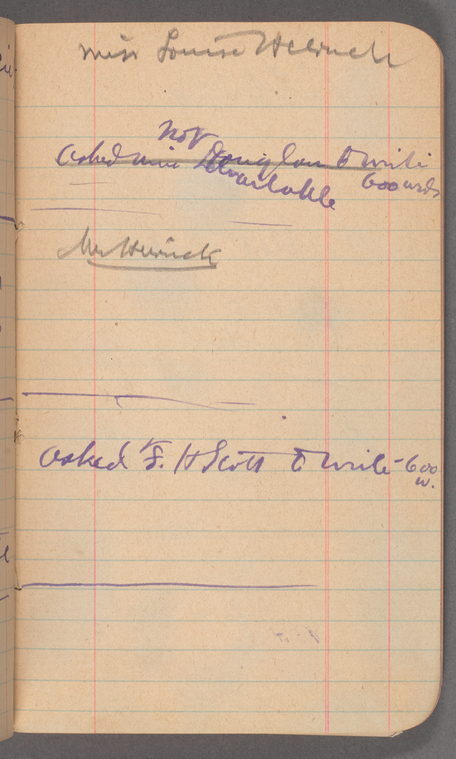 Miss Louise Herrick
Not
Asked Miss Douglas to write
Available 600 wrds
Mr Herrick
Asked F. H Scott to write - 600
w.